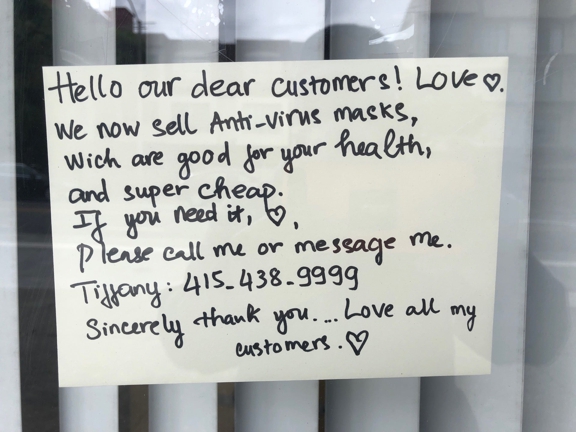 Hello our dear customers! Love ♡.
We now sell Anti-virus masks,
Wich are good for your health,
and super cheap.
If you need it, ♡,
Please call me or message me.
Tiffany: 415-438-9999
Sincerely thank you.... Love all my
customers. ♡